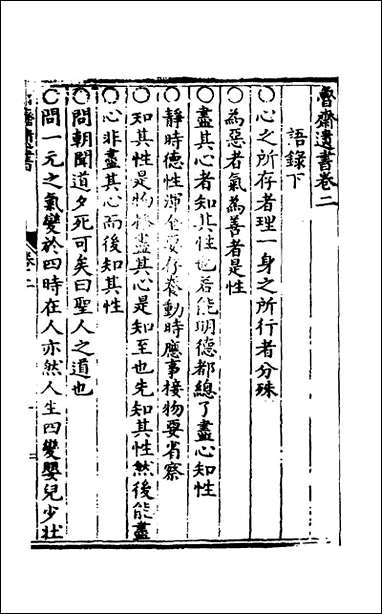 魯齋遺書卷二
語錄下
○心之所存者理一身之所行者分殊
○為惡者氣為善者是性
○盡其心者知其性也若能明德都總了盡心知性
○靜時德性渾全要存養動時應事接物要省察
○知其性是物格盡其心是知至也先知其性然後能盡
心非盡其心而後知其性
○問朝聞道夕死可矣曰聖人之道也
○問一元之氣變於四時在人亦然人生四變嬰兒少壯